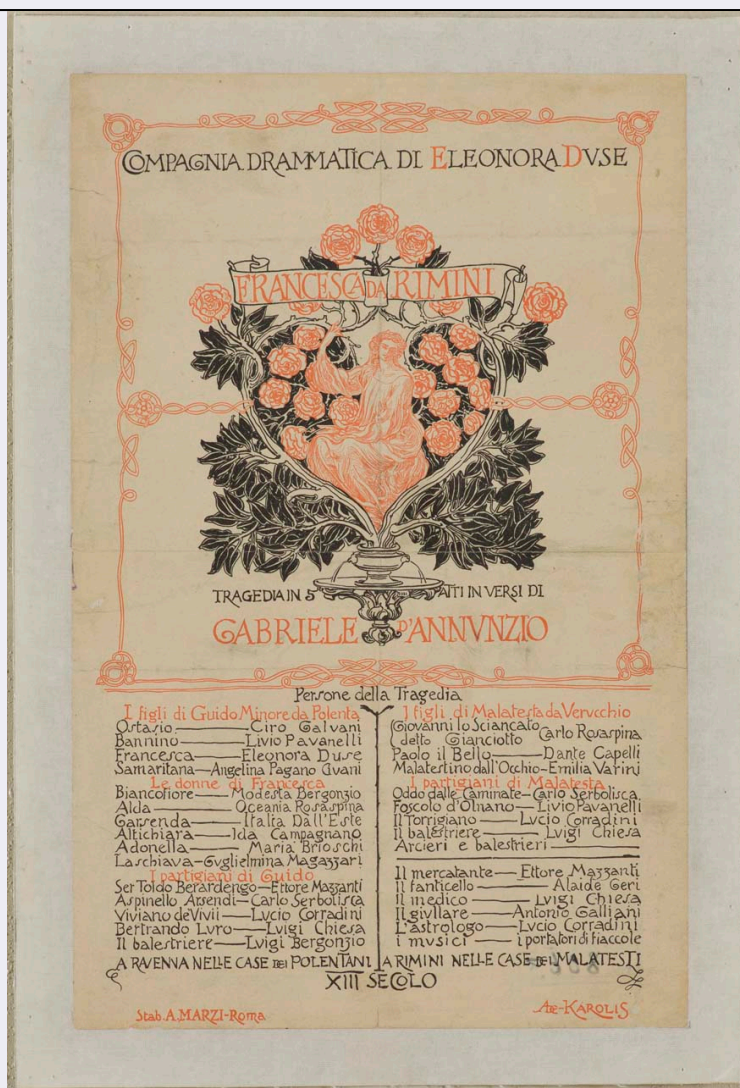 COMPAGNIA DRAMMATICA DI ELEONORA DVSE
FRANCESCA DA RIMINI
TRAGEDIA IN 5 ATTI IN VERSI DI
GABRIELE D'ANNVNZIO
Persone della Tragedia
I figli di Guido Minore da Polenta
Ostasio—Ciro Galvani
Bannino—Livio Pavanelli
Francesca—Eleonora Duse
Samaritana—Angelina Pagano Gvani
Le donne di Francesca
Biancofiore—Modesta Bergonzio
Alda—Oceania Rosaspina
Garsenda—Italia Dall'Este
Altichiara—Ida Campagnano
Adonella—Maria Brioschi
La schiava—Gvglielmina Magazzari
I partigiani di Guido
Ser Toldo Berardengo—Ettore Mazzanti
Aspinello Arsendi—Carlo Serbolisca
Viviano de Vivii—Lvcio Corradini
Bertrando Lvro—Lvigi Chiesa
Il balestriere—Lvigi Bergonzio
A RAVENNA NELLE CASE DEI POLENTANI
I figli di Malatesta da Vervcchio
Giovanni lo Sciancato
detto Gianciotto Carlo Rosaspina
Paolo il Bello—Dante Capelli
Malatestino dall'Occhio—Emilia Varini
I partigiani di Malatesta
Oddo dalle Caminate—Carlo Serbolisca
Foscolo d'Olnano—Livio Pavanelli
Il Torrigiano—Lvcio Corradini
Il balestriere—Lvigi Chiesa
Arcieri e balestrieri—
Il mercatante—Ettore Mazzanti
Il fanticello—Alaide Geri
Il medico—Lvigi Chiesa
Il givllare—Antonio Galliani
L'astrologo—Lvcio Corradini
i mvsici—i portatori di fiaccole
A RIMINI NELLE CASE DEI MALATESTI
XIII SECOLO
Stab. A. MARZI-Roma
ADe-KAROLIS